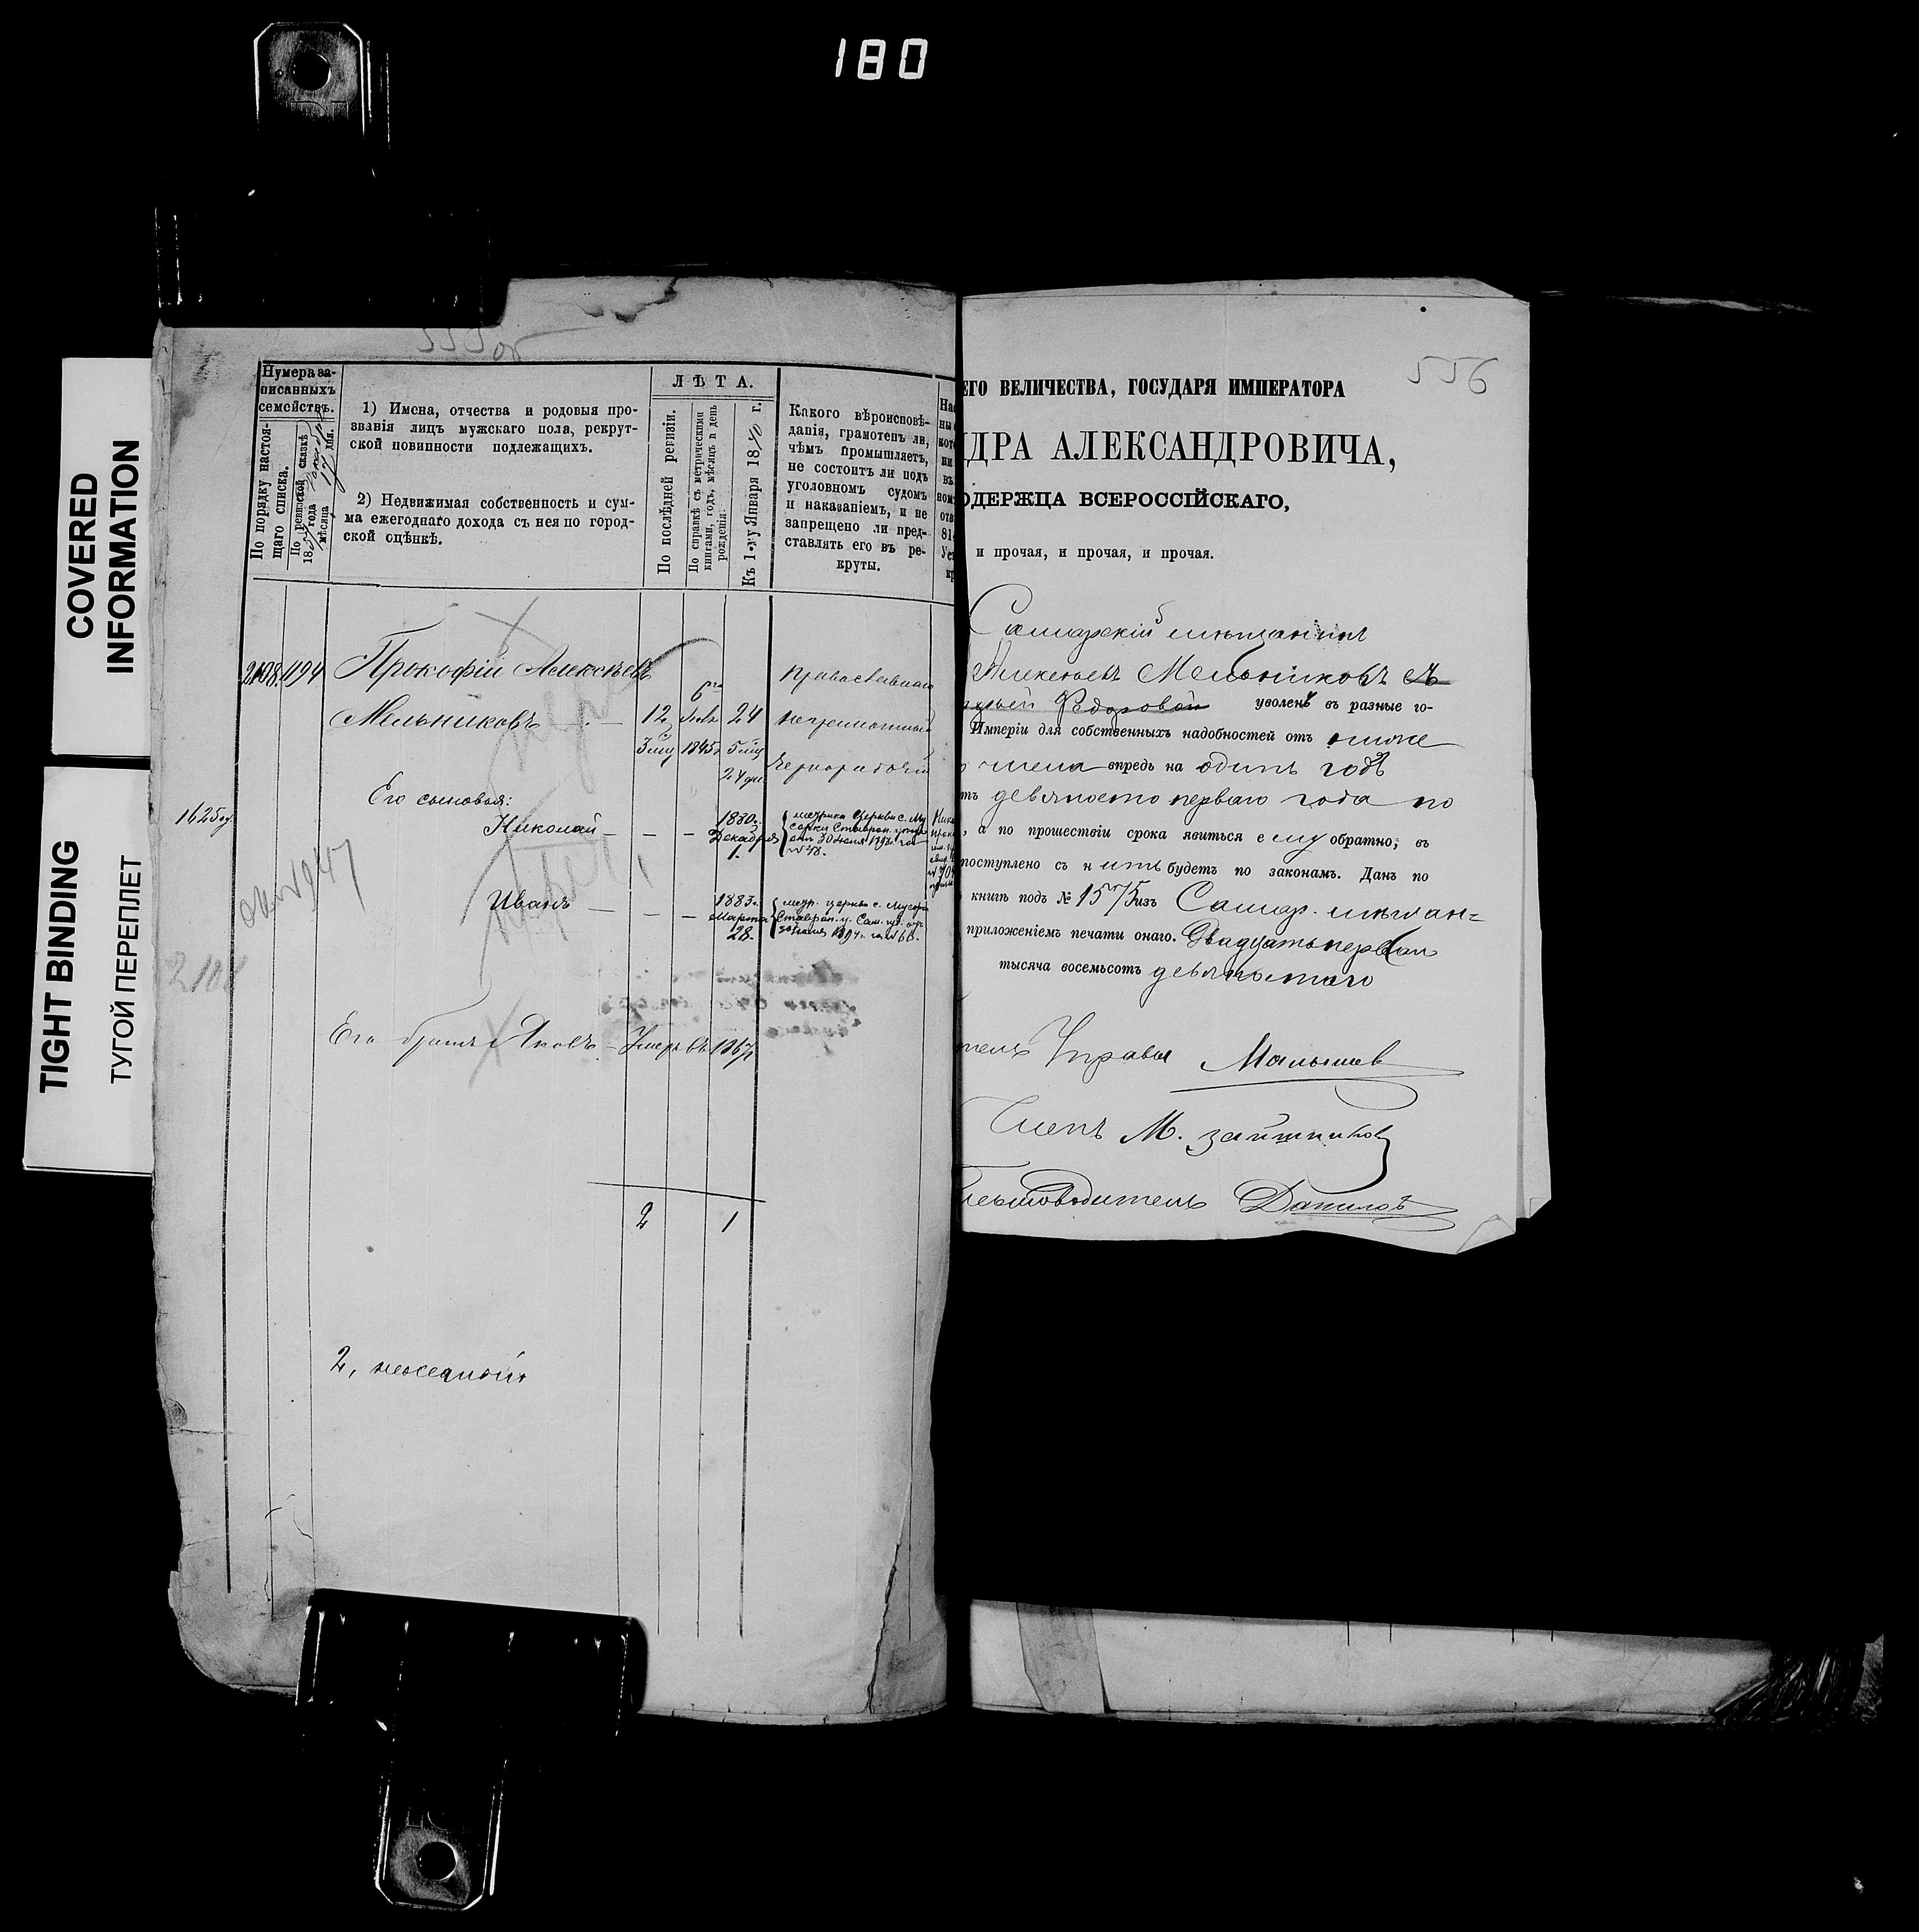 180
COVERED
INFORMATION
TIGHT BINDING
ТУГОЙ ПЕРЕПЛЕТ
555 об
Нумера за-
писанныхъ
семействъ.
По порядку настоя-
щаго списка.
По ревизской сказкѣ
18 года
мѣсяца дня.
1) Имена, отчества и родовыя про-
званія лицъ мужскаго пола, рекрут-
ской повинности подлежащихъ.
2) Недвижимая собственность и сум-
ма ежегоднаго дохода съ нея по город-
ской оцѣнкѣ.
ЛѢТА.
По послѣдней ревизіи.
По справкѣ съ метрическими
книгами, годъ, мѣсяцъ и день
рожденія.
Къ 1-му Января 1870 г.
Какого вѣроисповѣ-
данія, грамотенъ ли,
чѣмъ промышляетъ,
не состоитъ ли подъ
уголовномъ судомъ
и наказаніемъ, и не
запрещено ли пред-
ставлять его въ ре-
круты.
2108. 1194 Прокофій Алексѣевъ православнаго
6го
Мельниковъ — 12 Іюля 24 неграмотный
1845 5 мѣ
24 дн. чернорабочій
Его сыновья:
1625
Николай — — — 1880г.
Декабря
1.
метрика церкви с. Му
сорки Ставроп. уѣзда
отъ 30 Іюня 189 г. за
№ 48.
Иванъ — — — 1883г.
Марта
28.
метр. церкви с. Мусорк
Ставроп. у. Сам. губ. отъ
2108
Его братъ Яковъ — Умеръ въ 1867г.
2 1
2,
556
ЕГО ВЕЛИЧЕСТВА, ГОСУДАРЯ ИМПЕРАТОРА
ДРА АЛЕКСАНДРОВИЧА,
ОДЕРЖЦА ВСЕРОССІЙСКАГО,
и прочая, и прочая, и прочая.
Самарскій мѣщанинъ
Алексѣевъ Мельниковъ съ
Федоровой уволенъ въ разные го-
Имперіи для собственныхъ надобностей отъ ниже
числа впредь на одинъ годъ
ть девяносто перваго года по
, а по прошествіи срока явиться ему обратно; въ
поступлено съ нимъ будетъ по законамъ. Данъ по
книгѣ подъ № 1575 изъ Самар. мѣщан=
приложеніемъ печати онаго. Двадцать первая
тысяча восемьсотъ девяностаго
тель Управы Малышев
Членъ М. Зайчиков
Дѣлопроизводитель Даниловъ